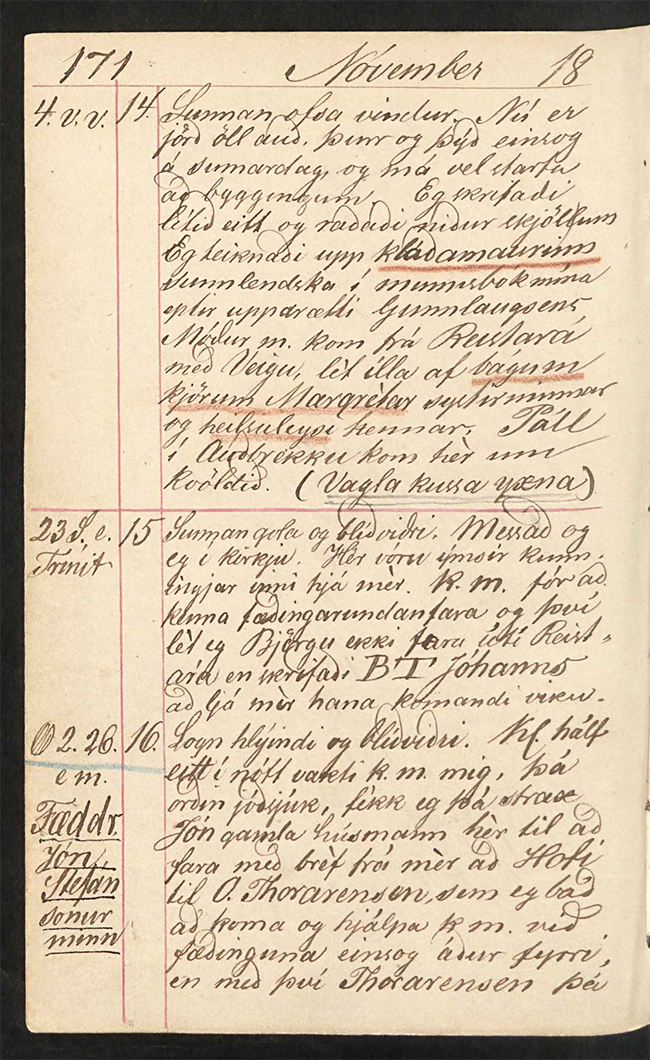 171 Nóvember 18
4. v. v. 14. Sunnan ofsa vindur. Nú er
jörð öll auð, þurr og þýð einsog
á sumardag, og má vel starfa
að byggingum. Eg skrifaði
lítið eitt og raðaði niður skjölum
Eg teiknaði upp kláðamaurinn
sunnlendska í minnisbók mína
eptir uppdrætti Gunnlaugsens,
Móður m. kom frá Reistará
með Veigu, lét illa af bágum
kjörum Margrétar systir minnar
og heilsuleysi hennar. Páll
í Auðbrekku kom hèr um
kvöldið. (Vagla kussa yxna)
23 S. e. 15 Sunnan gola og blíðviðri. Messað og
Trinit eg í kirkju. Hér vóru ýmsir kunn-
ingjar inni hjá mèr. K. m. fór að
kenna fæðingarundanfara og því
lèt eg Björgu ekki fara útí Reist-
ará en skrifaði BT Jóhanns
að ljá mèr hana komandi viku.
2. 26. 16. Logn hlýindi og blíðviðri. Kl. hálf
e m. eitt í nótt vakti k. m. mig, þá
Fæddr orðin jóðsjúk, fèkk eg þá strax
Jón Jón gamla húsmann hèr til að
Stefán fara með brèf frá mèr að Hofi
sonur til O. Thorarensen, sem eg bað
minn að koma og hjálpa k m. við
fæðinguna einsog áður fyrri,
en með því Thorarensen þá